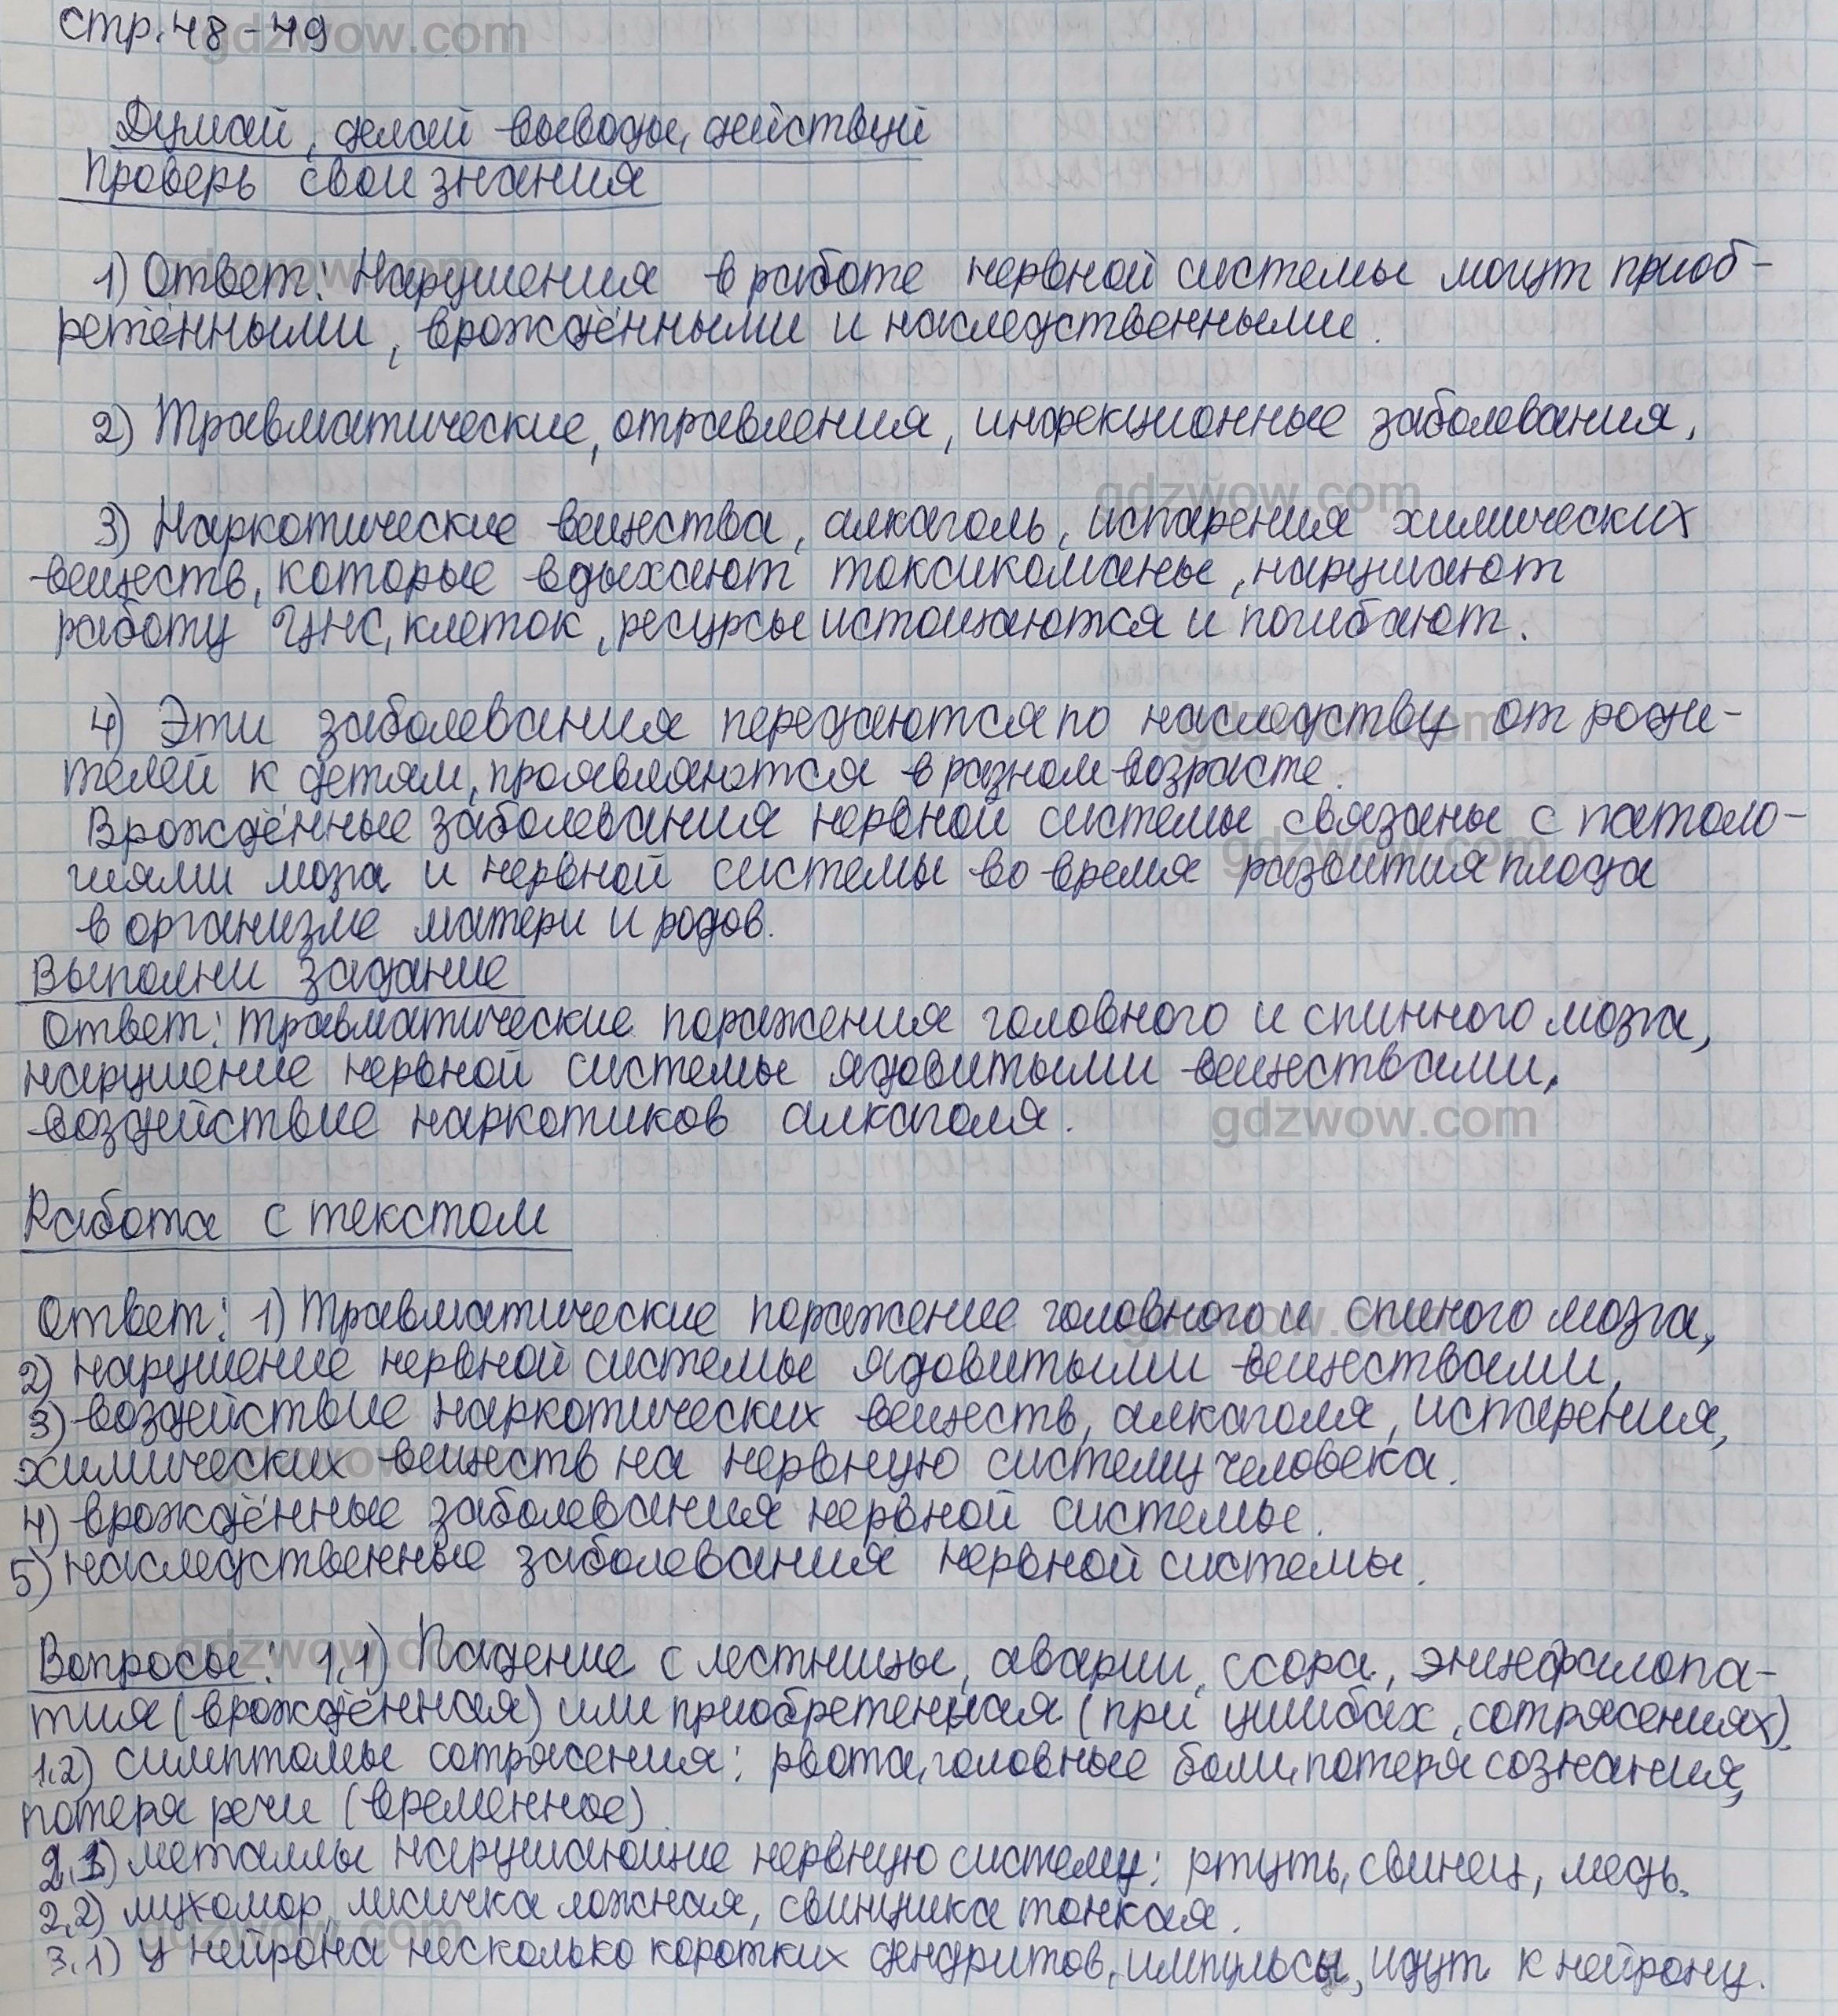 стр. 48-49
Думай, делай выводы, действуй
Проверь свои знания
1) Ответ: Нарушения в работе нервной системы могут приоб-
ретёнными, врождёнными и наследственными.
2) Травматические, отравления, инфекционные заболевания,
3) Наркотические вещества, алкаголь, испарения химических
веществ, которые вдыхают токсикоманы, нарушают
работу ЦНС, клеток, ресурсы истощаются и погибают.
4) Эти заболевания передаются по наследству от роди-
телей к детям, проявляются в разном возрасте.
Врождённые заболевания нервной системы связаны с патоло-
гиями мозга и нервной системы во время развития плода
в организме матери и родов.
Выполни задание
Ответ: травматические поражения головного и спинного мозга,
нарушение нервной системы ядовитыми веществами,
воздействие наркотиков алкаголя.
Работа с текстом
Ответ: 1) Травматические поражение головного и спиного мозга,
2) нарушение нервной системы ядовитыми веществами,
3) воздействие наркотических веществ, алкаголя, испарения,
химических веществ на нервную систему человека.
4) врождённые заболевания нервной системы.
5) наследственные заболевания нервной системы.
Вопросы: 1.1) Падение с лестницы, аварии, ссора, энцефалопа-
тия (врождённая) или приобретенная (при ушибах, сотрясениях).
1.2) симптомы сотрясения: рвота, головные боли, потеря сознания,
потеря речи (временное).
2.1) металлы нарушающие нервную систему: ртуть, свинец, медь.
2.2) мухомор, лисичка ложная, свинушка тонкая.
3.1) У нейрона несколько коротких дендритов, импульсы, идут к нейрону.
gdzwow.com
gdzwow.com
gdzwow.com
gdzwow.com
gdzwow.com
gdzwow.com
gdzwow.com
gdzwow.com
gdzwow.com
gdzwow.com